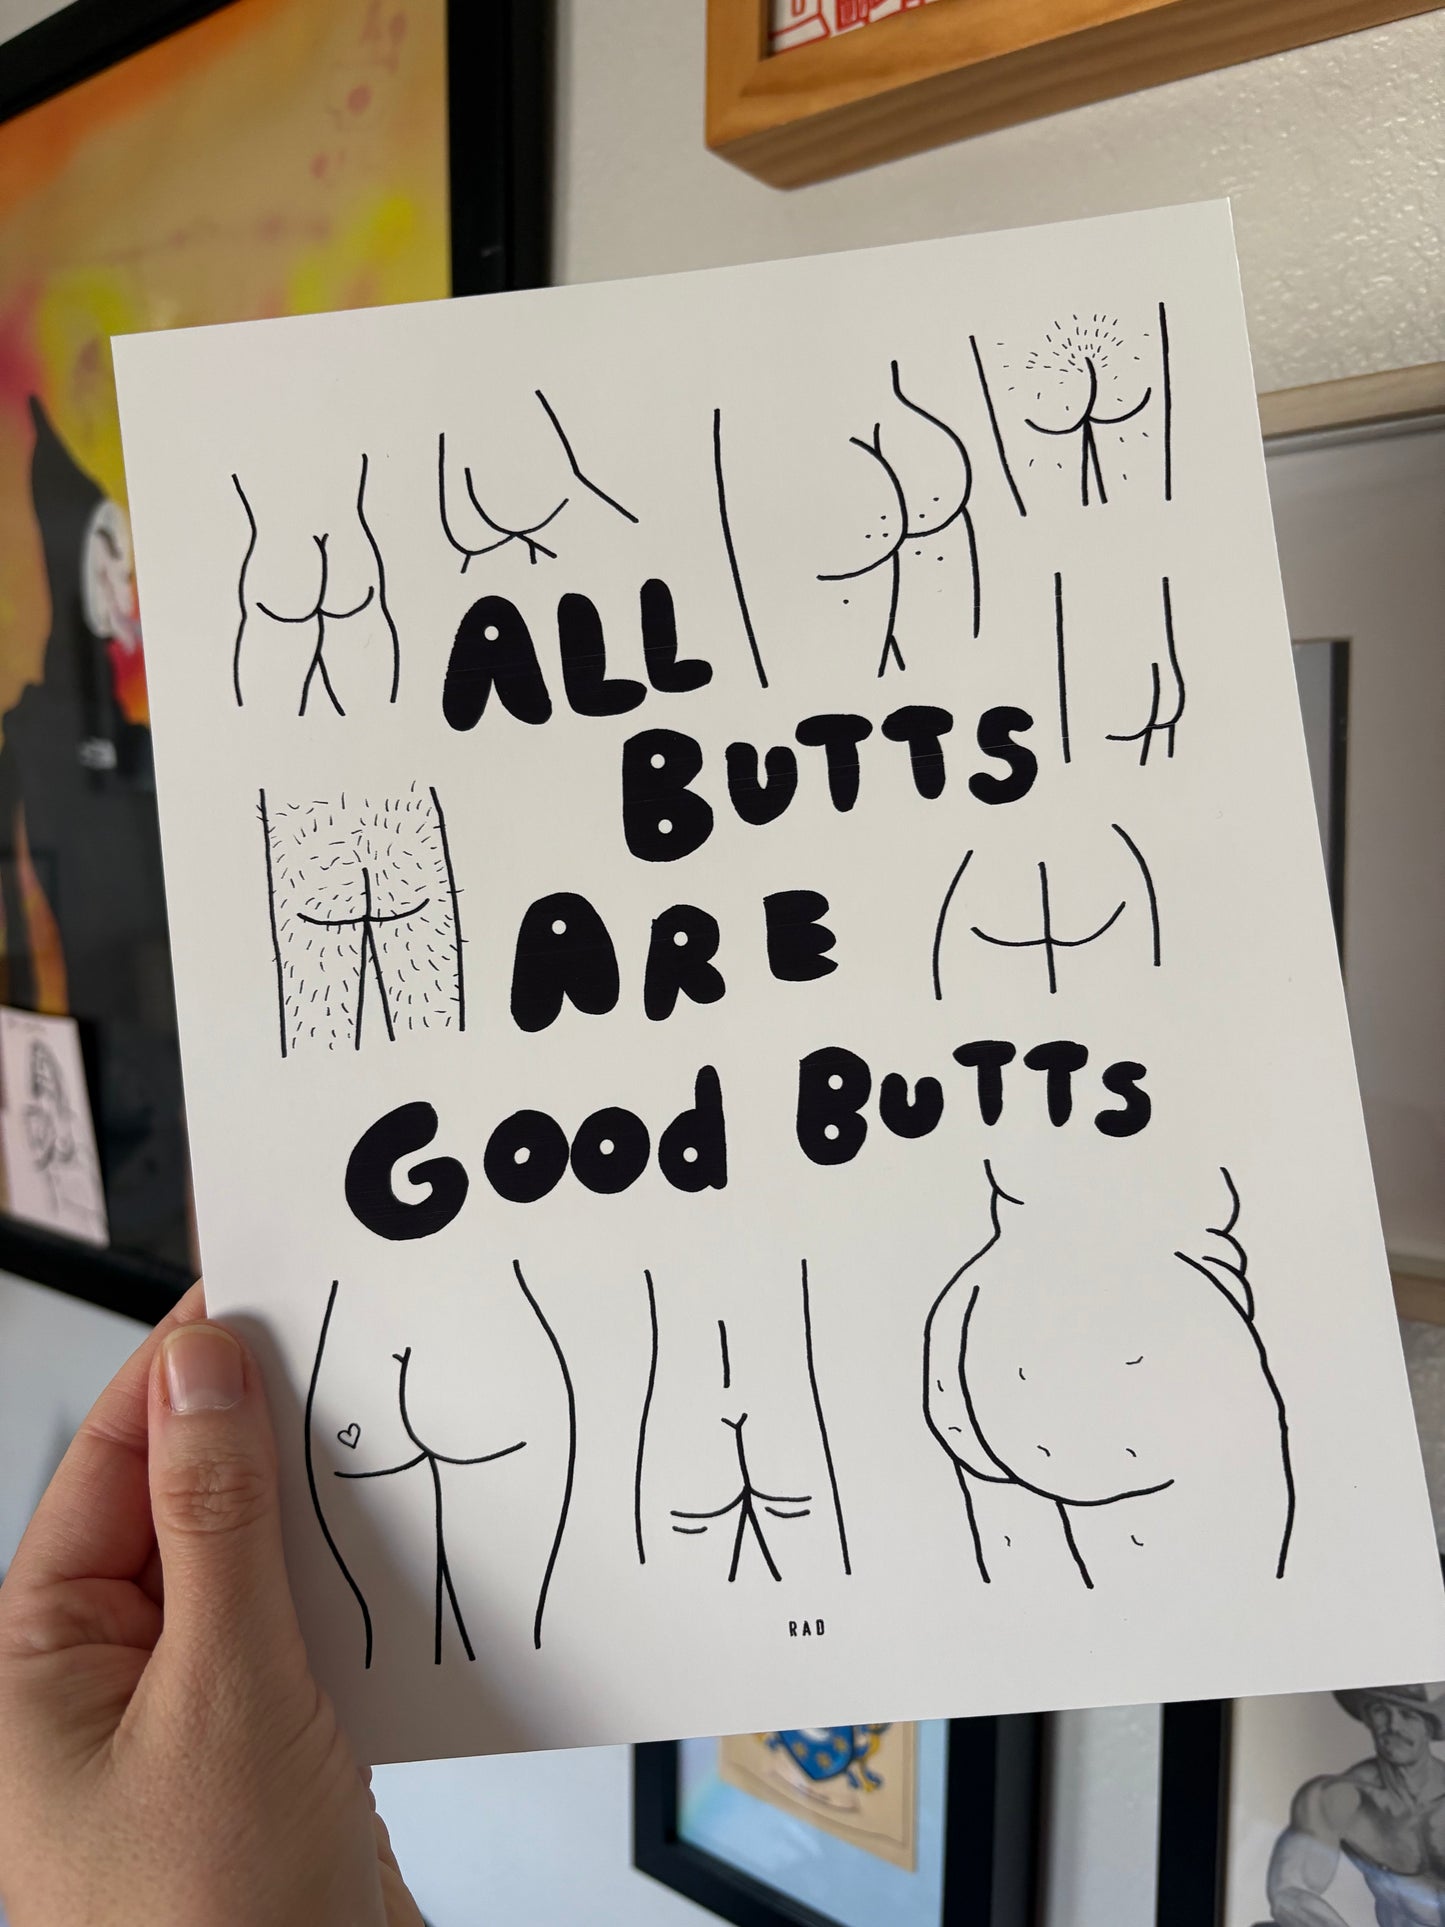 ALL
BUTTS
ARE
GOOd BUTTS
RAD